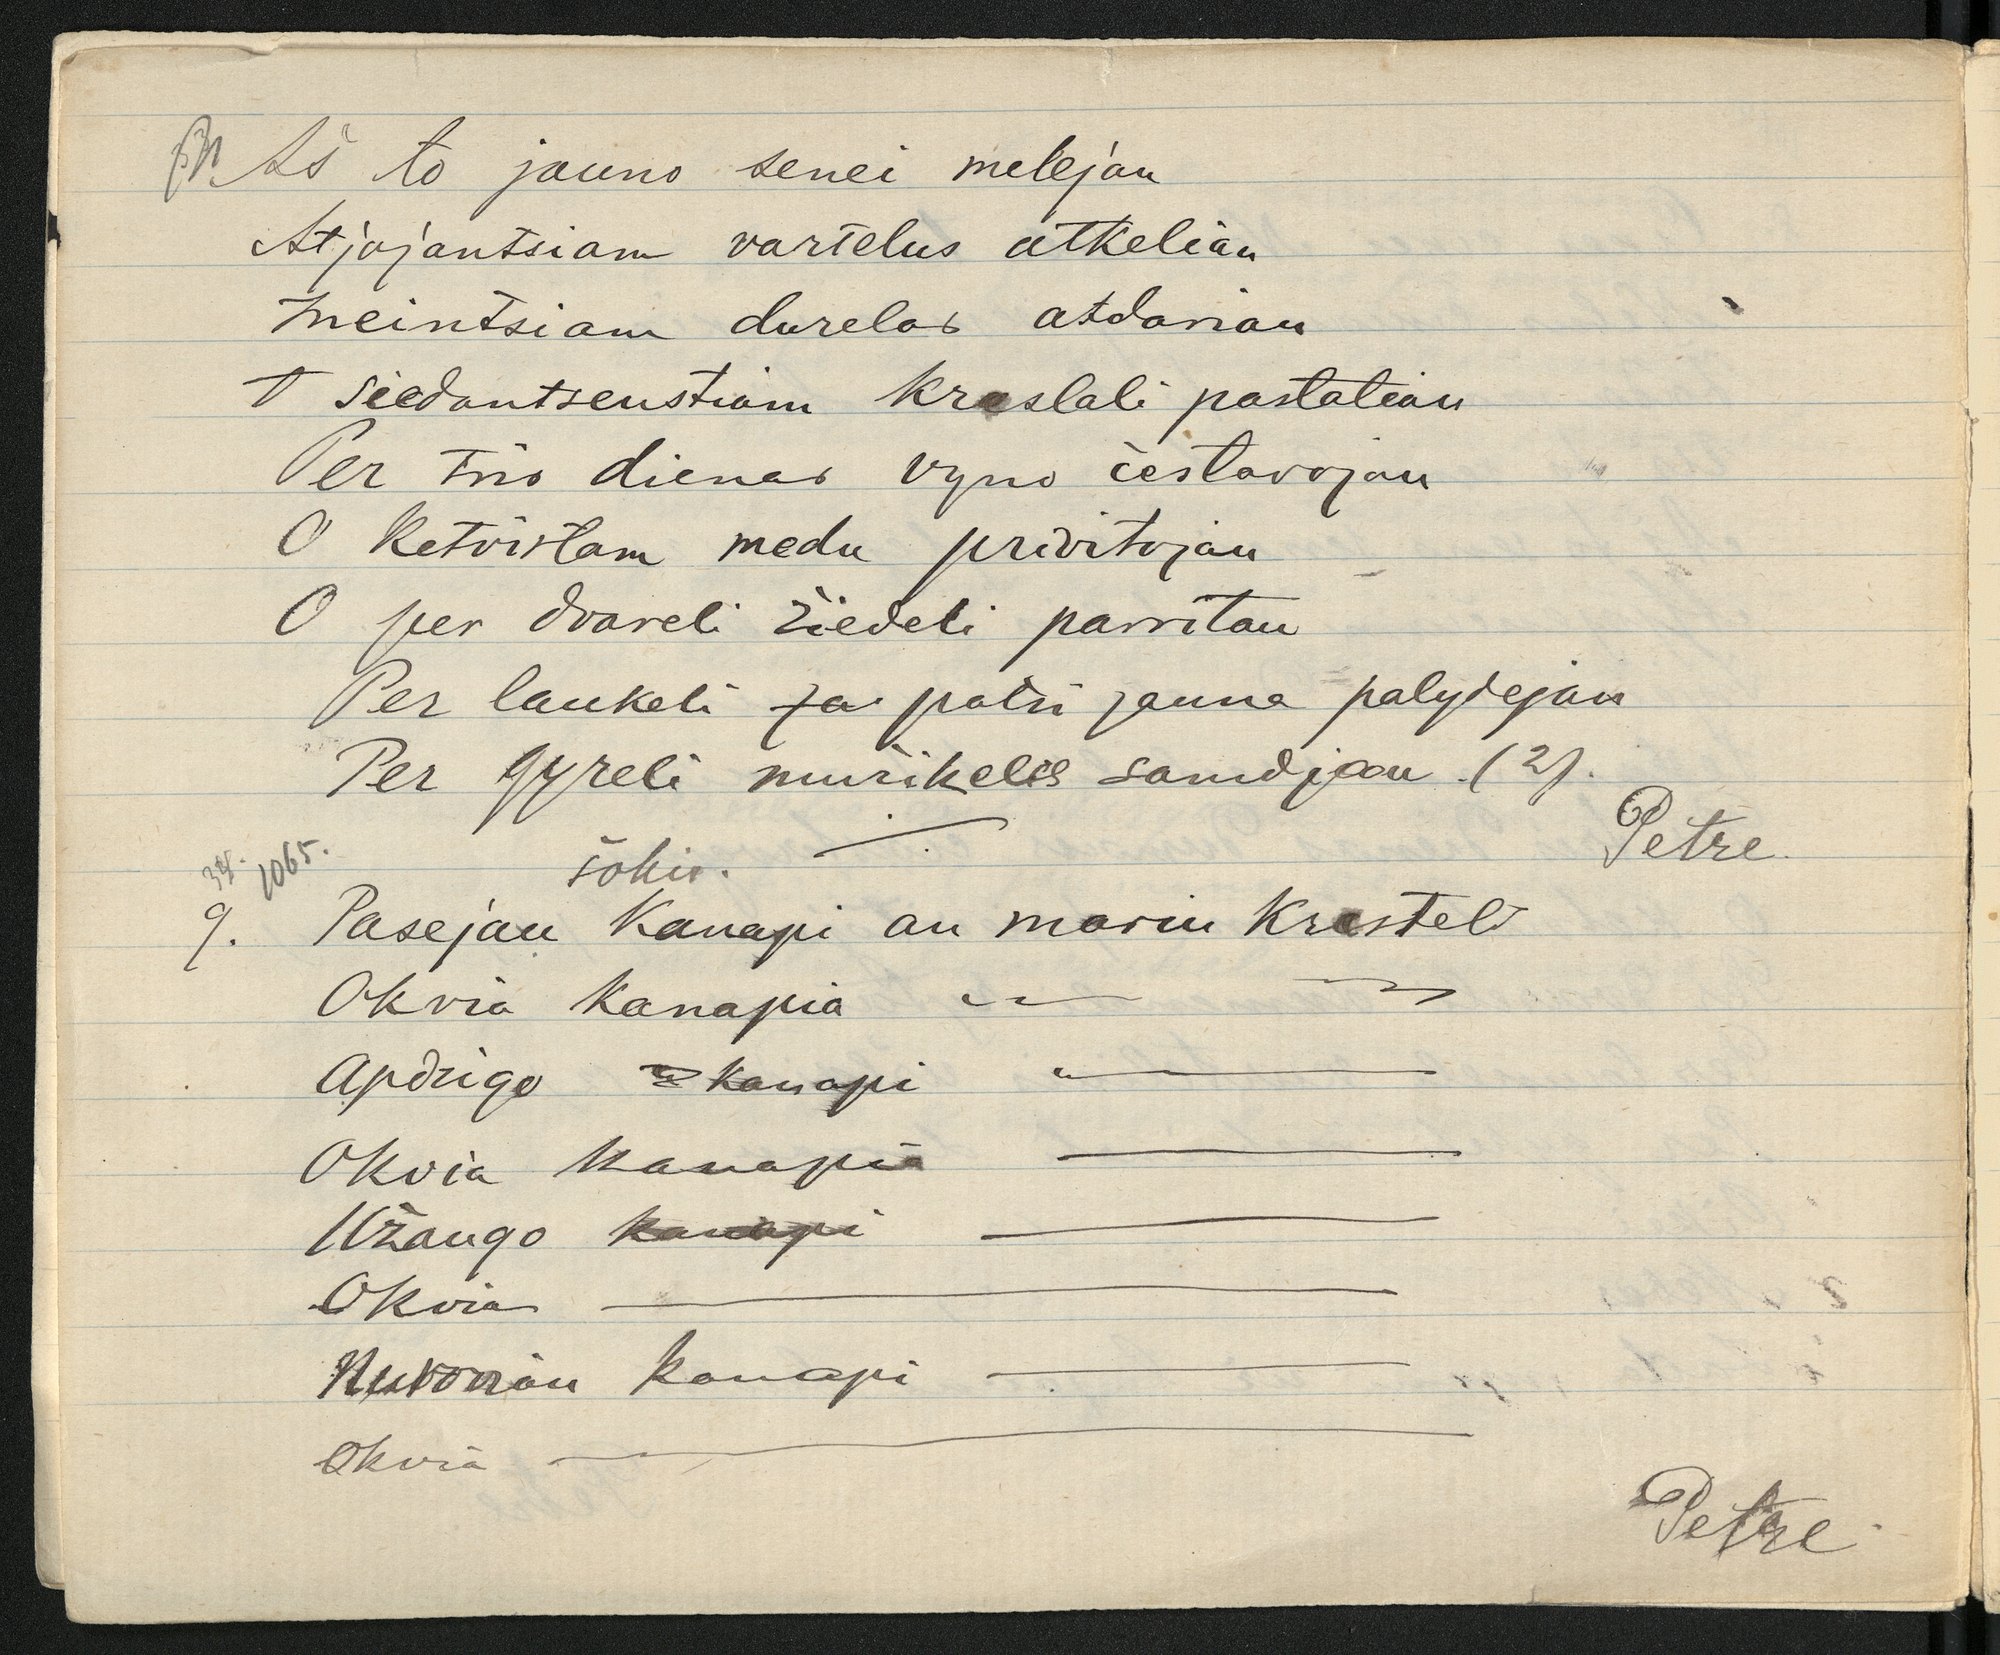 Aš to jauno senei melejau
Atjojantsiam vartelus atkeliau
Ineintsiam durelas atdariau
T siedantsenstiam kraslali pastateiau
Per tris dienas vyno čestavojau
O ketvirtam medu privitojau
O per dvareli žiedeli parritau
Per laukeli ja patri jauna palydejau
Per gyreli mušikelis samdjau (2).
Petre.
34. 1065. šokis.
9. Pasejau Kanapi an mariu Krasteli
Okvia Kanapia
Apdrigo kanapi
Okvia kanapia
Užaugo kanapi
Okvia
Nuroviau kanapi
Okvia
Petre